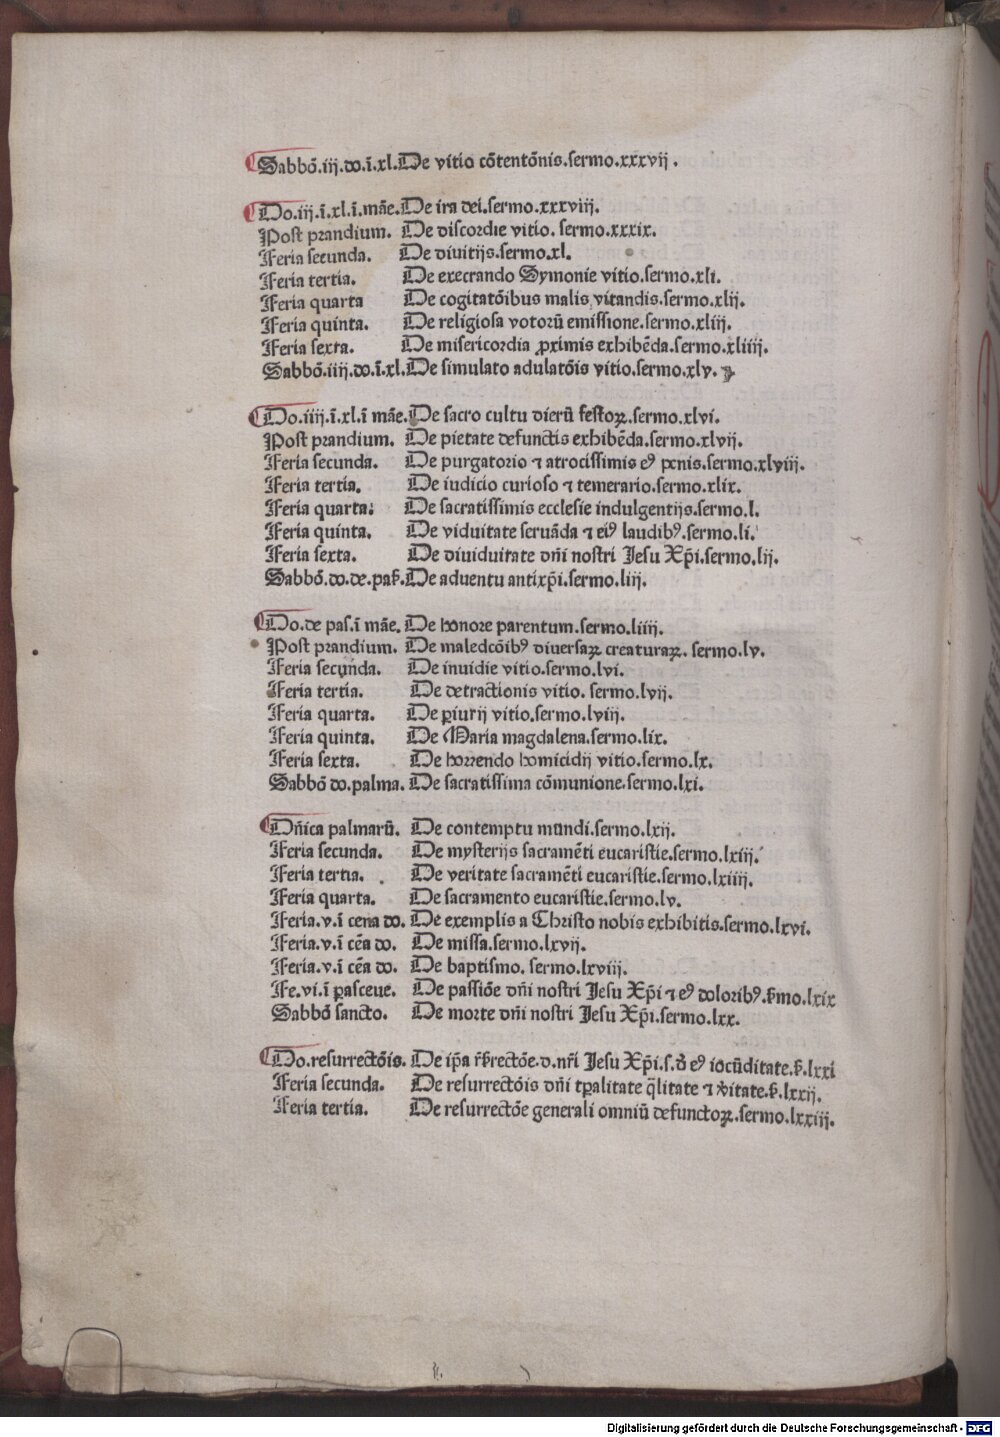 Sabbō.iij.do.ī.xl.De vitio cōtentōnis.sermo.xxxvij.
Do.iij.ī.xl.ī.māe.De ira dei.sermo.xxxviij.
Post prandium. De discordie vitio. sermo.xxxix.
Feria secunda. De diuitijs.sermo.xl.
Feria tertia. De execrando Symonie vitio.sermo.xli.
Feria quarta De cogitatōibus malis vitandis.sermo.xlij.
Feria quinta. De religiosa votorū emissione.sermo.xliij.
Feria sexta. De misericordia ꝓximis exhibēda.sermo.xliiij.
Sabbō.iiij.do.ī.xl.De simulato adulatōis vitio.sermo.xlv.
Do.iiij.ī.xl.ī māe.De sacro cultu dierū festoꝝ.sermo.xlvi.
Post prandium. De pietate defunctis exhibēda.sermo.xlvij.
Feria secunda. De purgatorio ⁊ atrocissimis eꝰ penis.sermo.xlviij.
Feria tertia. De iudicio curioso ⁊ temerario.sermo.xlix.
Feria quarta: De sacratissimis ecclesie indulgentijs.sermo.l.
Feria quinta. De viduitate seruāda ⁊ eiꝰ laudibꝰ.sermo.li.
Feria sexta. De diuiduitate dn̄i nostri Jesu Xp̄i.sermo.lij.
Sabbō.do.de.pas̄.De aduentu antixp̄i.sermo.liij.
Do.de pas.ī māe. De honore parentum.sermo.liiij.
Post prandium. De maledcōibꝰ diuersaꝝ creaturaꝝ. sermo.lv.
Feria secunda. De inuidie vitio.sermo.lvi.
Feria tertia. De detractionis vitio. sermo.lvij.
Feria quarta. De ꝑiurij vitio.sermo.lviij.
Feria quinta. De Maria magdalena.sermo.lix.
Feria sexta. De horrendo homicidij vitio.sermo.lx.
Sabbō do.palma. De sacratissima cōmunione.sermo.lxi.
Dn̄ica palmarū. De contemptu mundi.sermo.lxij.
Feria secunda. De mysterijs sacramēti eucaristie.sermo.lxiij.
Feria tertia. De veritate sacramēti eucaristie.sermo.lxiiij.
Feria quarta. De sacramento eucaristie.sermo.lv.
Feria.v.ī cena do. De exemplis a Christo nobis exhibitis.sermo.lxvi.
Feria.v.ī cēa do. De missa.sermo.lxvij.
Feria.v.ī cēa do. De baptismo. sermo.lxviij.
Fe.vi.ī ꝑasceue. De passiōe dn̄i nostri Jesu Xp̄i ⁊ eꝰ doloribꝰ.s̄mo.lxix
Sabbō sancto. De morte dn̄i nostri Jesu Xp̄i.sermo.lxx.
Do.resurrectōis. De ip̄a r̄s̄rectōe.d.nr̄i Jesu Xp̄i.s.d̄ eꝰ iocūditate.s̄.lxxi
Feria secunda. De resurrectōis dn̄i tp̄alitate q̄litate ⁊ v̄itate.s̄.lxxij.
Feria tertia. De resurrectōe generali omniū defunctoꝝ.sermo.lxxiij.
Digitalisierung gefördert durch die Deutsche Forschungsgemeinschaft - DFG